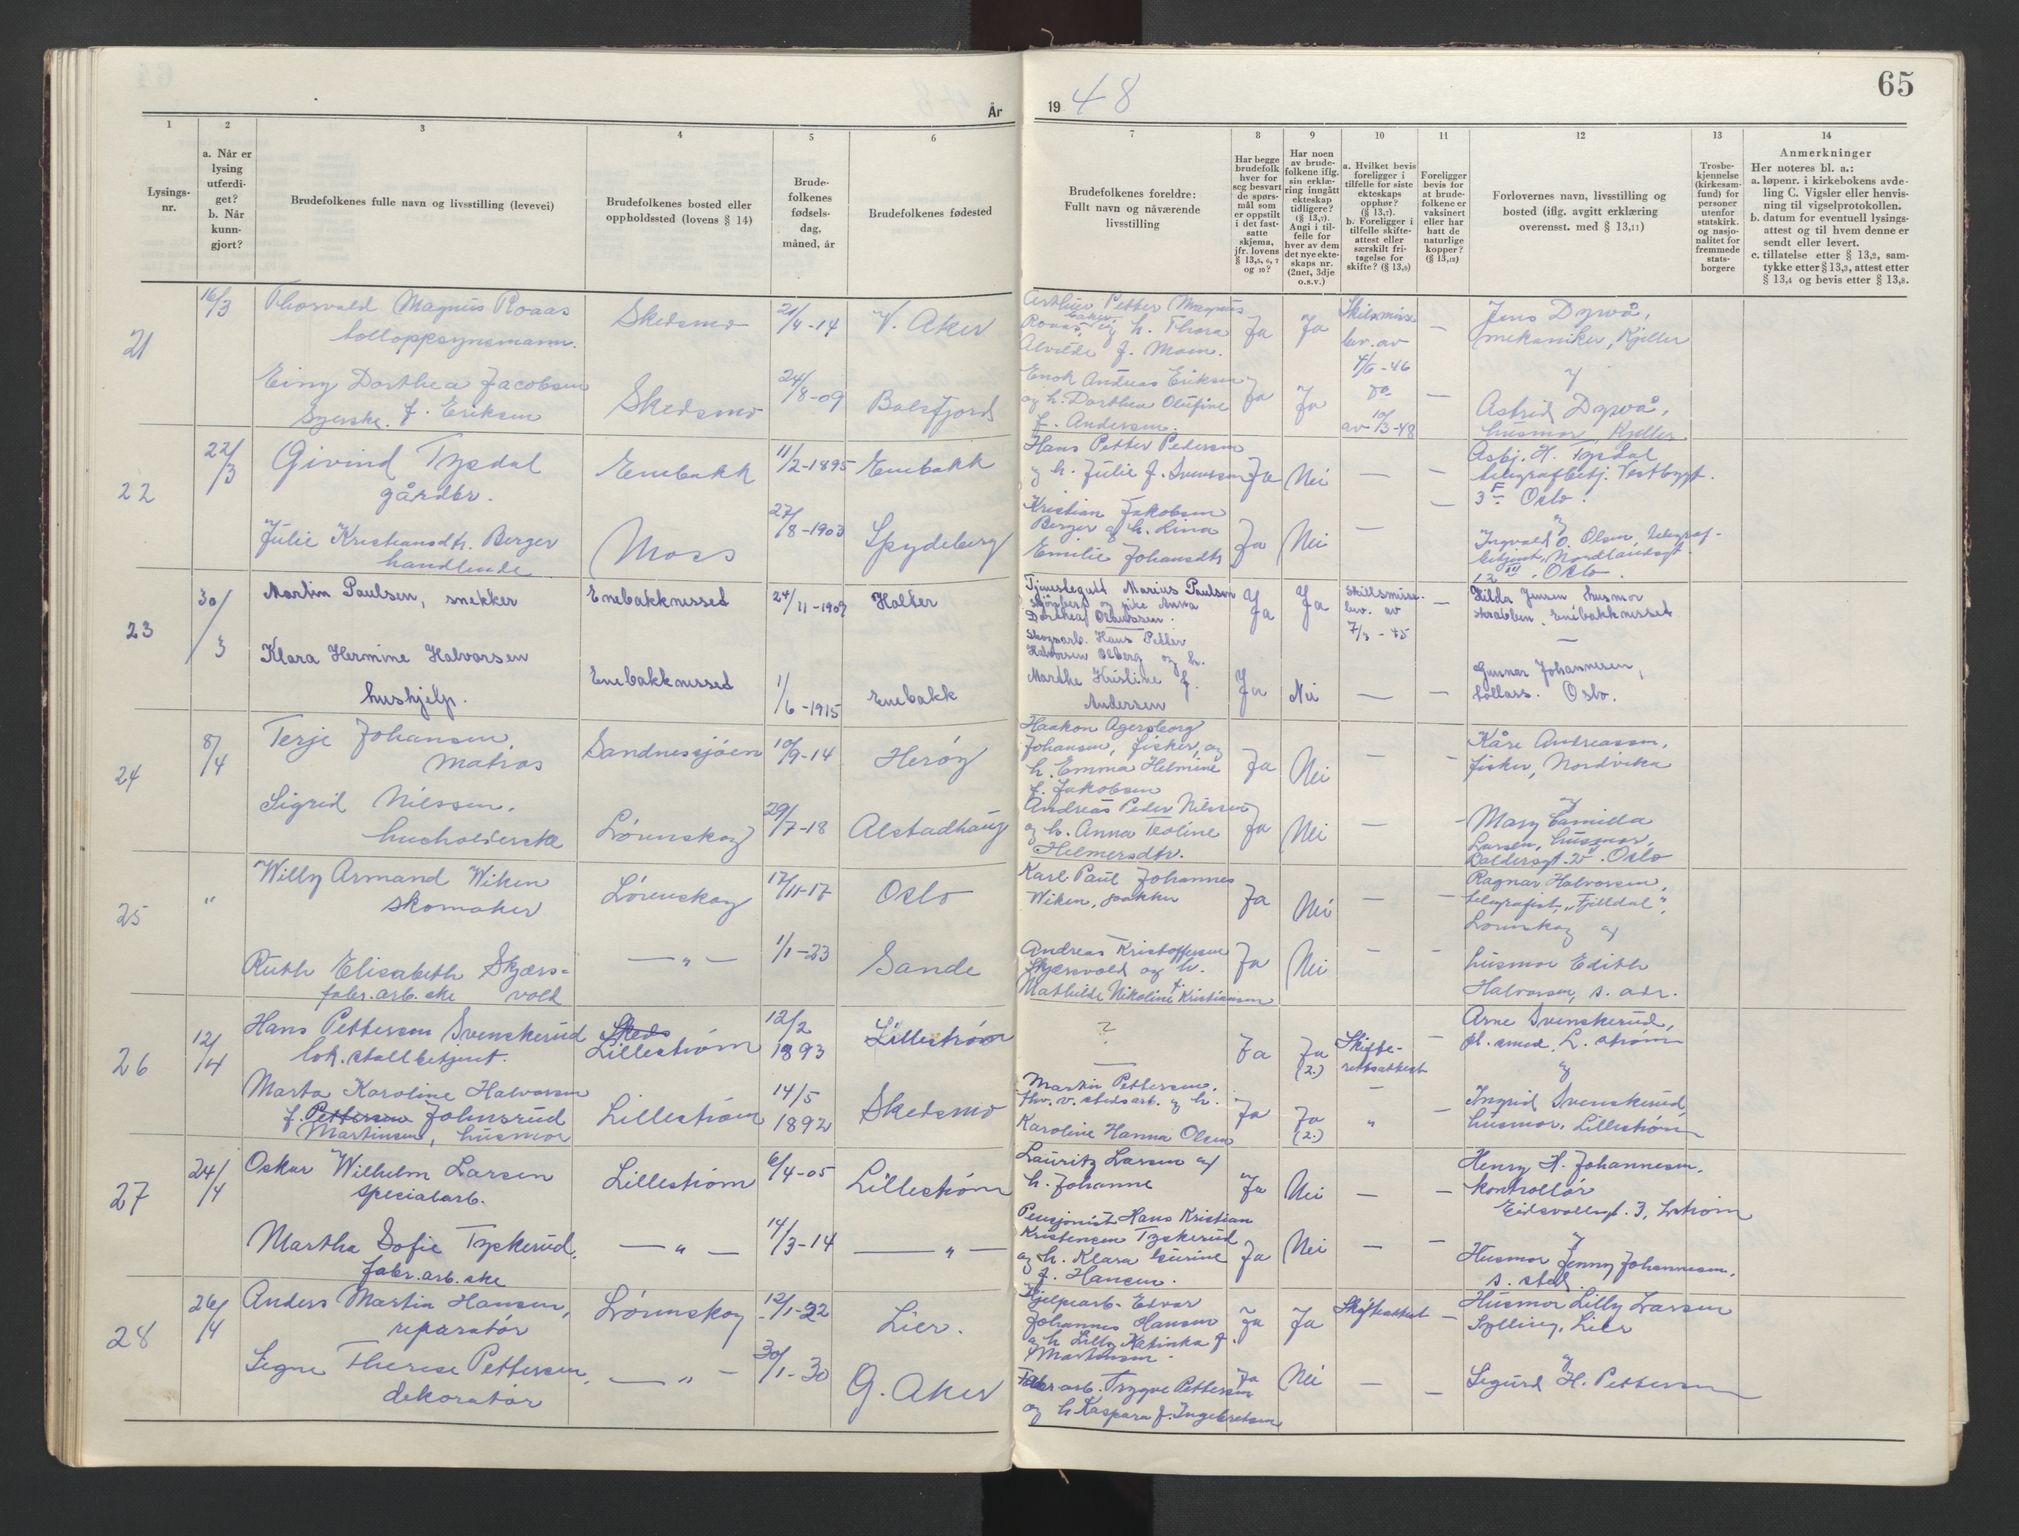 65
År
19 48
1
2
3
4
5
6
7
8
9
10
11
12
13
14
Lysings-
nr.
a. Når er
lysing
utferdi-
get?
b. Når
kunn-
gjort?
Brudefolkenes fulle navn og livsstilling (levevei)
Brudefolkenes bosted eller
oppholdssted (lovens § 14)
Brude-
folkenes
fødsels-
dag,
måned, år
Brudefolkenes fødested
Brudefolkenes foreldre:
Fullt navn og nåværende
livsstilling
Har begge
brudefolk
hver for
seg besvart
de spørs-
mål som
er oppstilt
i det fast-
satte
skjema,
jfr. lovens
§ 13,5, 6, 7
og 10?
Har noen
av brude-
folkene iflg.
sin erklæ-
ring inngått
ekteskap
tidligere?
(§ 13,7).
Angi i til-
felle for
hver av dem
det nye ekte-
skaps nr.
(2net, 3dje
o.s.v.)
a. Hvilket bevis
foreligger i
tilfelle for siste
ekteskaps
opphør?
(§ 13,7).
b. Foreligger i
tilfelle skifte-
attest eller
særskilt fri-
tagelse for
skifte? (§ 13,8)
Foreligger
bevis for
at brude-
folkene er
vaksinert
eller har
hatt de
naturlige
kopper?
(§ 13,12)
Forlovernes navn, livsstilling og
bosted (iflg. avgitt erklæring
overensst. med § 13,11)
Trosbe-
kjennelse
(kirkesam-
fund) for
personer
utenfor
statskirk.
og nasjo-
nalitet for
fremmede
stats-
borgere
Anmerkninger
Her noteres bl. a.:
a. løpenr. i kirkebokens avde-
ling C. Vigsler eller henvis-
ning til vigselprotokollen.
b. datum for eventuell lysings-
attest og til hvem denne er
sendt eller levert.
c. tillatelse etter § 13,2, sam-
tykke etter § 13,3, attest etter
§ 13,4 og bevis etter § 13,8.
21
16/3
Thorvald Magnus Roaas
tolloppsynsmann.
Skedsmo
21/4-14
V. Aker
Arthur Petter Magnus
Roaas, og h. Thora
Alvilde f. Moen.
Ja
Ja
Skilsmisse
bev. av
4/6-46
—
Jens Dyrvå,
mekaniker, Kjeller
og
Einy Dorthea Jacobsen
syerske. f. Eriksen
Skedsmo
24/8-09
Balsfjord
Enok Andreas Eriksen
og h. Dorthea Olufine
f. Andersen.
Ja
Ja
do
av 10/3-48
—
Astrid Dyrvå,
husmor, Kjeller
22
22/3
Eivind Tysdal
gårdbr.
Enebakk
11/2-1895
Enebakk
Hans Petter Pedersen
og h. Julie f. Svensen
Ja
Nei
—
—
Asbj. H. Tysdal
telegrafbetj. Vestbygt.
3 F Oslo.
og
Julie Kristiansdtr. Berger
handlende
Moss
27/8-1903
Spydeberg
Kristian Jakobsen
Berger og h. Lina
Emilie Johansdtr
Ja
Nei
—
—
Ingvald O. Olsen, telegraf-
betjent, Nordlandsgt.
12 III, Oslo.
23
30/3
Martin Paulsen, snekker
Enebakkneset
24/11-1907
Holter
Tjenestegutt Marius Paulsen
Bjønberg og pike Anna
Dorthea Olaussen.
Ja
Ja
Skillsmisse.
bev. av
7/3-45
—
Hilda Jensen husmor
Krabben, Enebakkneset
—
Klara Hermine Halvorsen
hushjelp.
Enebakkneset
1/6-1915
Enebakk
Skogsarb. Hans Petter
Halvorsen Olberg og h.
Marthe Kristine f.
Andersen
Ja
Nei
—
—
Gunnar Johannesen,
tollass. Oslo.
24
8/4
Terje Johansen,
Matros
Sandnessjøen
10/9-14
Herøy
Haakon Agersborg
Johansen, fisker, og
h. Emma Helmine
f. Jakobsen
Ja
Nei
—
—
Kåre Andreassen,
fisker, Nordvika
og
Sigrid Nilssen.
husholderske
Lørenskog
29/7-18
Alstadhaug
Andreas Peder Nilssen
og h. Anna Teoline
Helmersdtr.
Ja
Nei
—
Mary Camilla
Larsen, husmor,
Baldersgt. 2 . Oslo
25
"
Willy Armand Wiken
skomaker
Lørenskog
17/11-17
Oslo
Karl Paul Johannes
Wiken, pakker
Ja
Nei
—
—
Ragnar Halvorsen,
telegrafist, "Fjelldal",
Lørenskog og
Ruth Elisabeth Skjærs-
fabr.arb.ske vold
— " —
1/1-23
Sande
Andreas Kristoffersen
Skjærsvold og h.
Mathilde Nikoline f. Kristiansen
Ja
Nei
—
—
husmor Edith
Halvorsen, s. adr.
26
12/4
Hans Pettersen Svenskerud
lok.stallbetjent.
Skeds
Lillestrøm
12/2
1893
Lillestrøm
?
—
Ja
Ja
(2.)
Skifte-
rettsattest
—
Arne Svenskerud,
pl. smed, L. strøm
og
Marta Karoline Halvorsen
f. Pettersen Johnsrud
Martinsen, husmor
Lillestrøm
14/5
1892
Skedsmo
Martin Pettersen,
fhv. v. stedsarb. og h.
Karoline Hanna Olsen
Ja
Ja
(2.)
"
—
Ingrid Svenskerud,
husmor, Lillestrøm
27
24/4
Oskar Wilhelm Larsen
spesialarb.
Lillestrøm
6/4-05
Lillestrøm
Lauritz Larsen og
h. Johanne
Ja
Nei
—
—
Henry H. Johannesen,
kontrollør
Eidsvollsgt. 3, L.strøm
og
Martha Sofie Tyskerud,
fabr.arb.ske
— " —
14/3-14
— " —
Pensjonist Hans Kristian
Kristensen Tyskerud
og h. Klara Gurine
f. Hansen.
Ja
Nei
—
—
Husmor Jenny Johannesen,
s. sted.
28
26/4
Anders Martin Hansen,
reparatør
Lørenskog
12/1-22
Lier.
Hjelpearb. Edvar
Johannes Hansen
og h. Lilly Katinka f.
Martinsen.
Ja
Ja
Skifteattest
—
Husmor Lilly Larsen
Sylling, Lier
og
Signe Therese Pettersen,
dekoratør
— " —
30/1-30
Ø. Aker
Fabr arb. Trygve Pettersen
og h. Kaspara f. Ingebretsen
Ja
Nei
—
—
Sigurd H. Pettersen